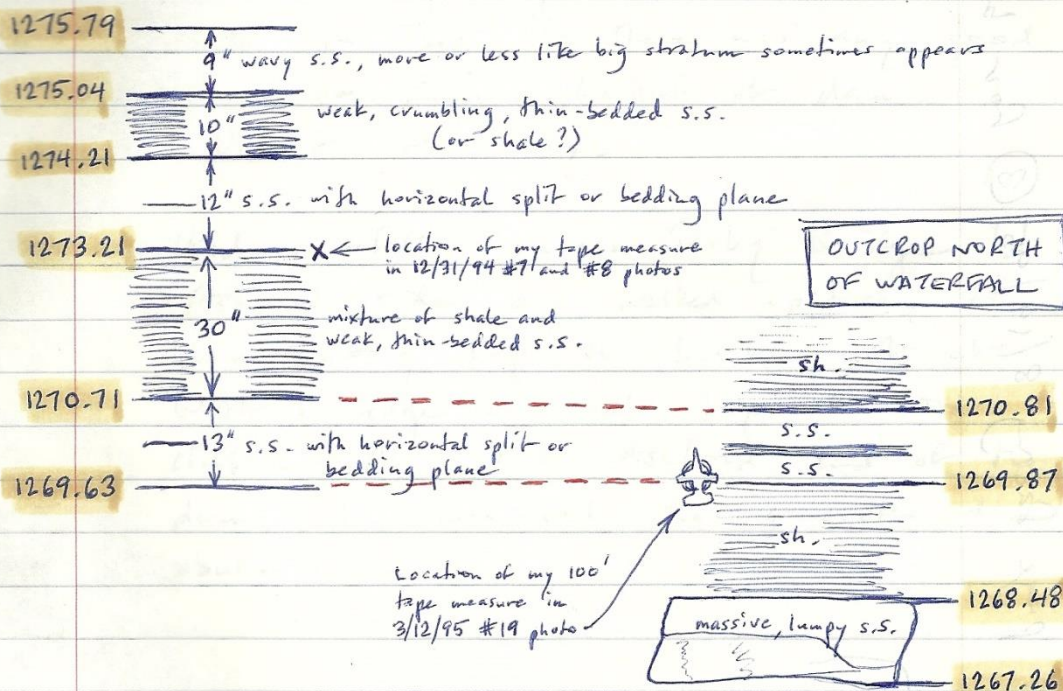 1275.79
9" wavy s.s., more or less like big stratum sometimes appears
1275.04
10" weak, crumbling, thin-bedded s.s.
(or shale?)
1274.21
12" s.s. with horizontal split or bedding plane
1273.21
X ← location of my tape measure
in 12/31/94 #7 and #8 photos
OUTCROP NORTH
OF WATERFALL
30" mixture of shale and
weak, thin-bedded s.s.
sh.
1270.71
1270.81
13" s.s. with horizontal split or
bedding plane
s.s.
s.s.
1269.63
1269.87
sh.
Location of my 100'
tape measure in
3/12/95 #19 photo
1268.48
massive, lumpy s.s.
1267.26